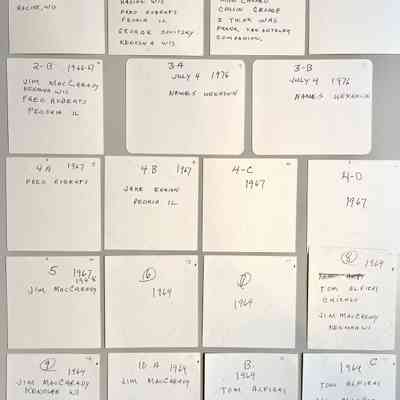 RACINE, WIS
RACINE WIS
FRED ROBERTS
PEORIA IL
GEORGE
KENOSHA WIS
COLIN GEORGE
I THINK WAS
FRANK
COMPANION,
2-B 1966-67
JIM MACCREADY
KENOSHA WIS
FRED ROBERTS
PEORIA IL
3-A
JULY 4 1976
NAMES UNKNOWN
3-B
JULY 4 1976
NAMES UNKNOWN
4A 1967
FRED ROBERTS
4.B 1967
JAKE
PEORIA IL
4-C
1967
4-D
1967
5 1967
1968
JIM MACCREADY
6
1969
7
1969
8 1969
TOM ALFIERI
CHICAGO
JIM MACCREADY
KENOSHA WI
9 1969
JIM MACCREADY
KENOSHA WI
10 A 1969
JIM MACCREADY
B.
1969
TOM ALFIERI
1969 C
TOM ALFIERI
JIM MACCREADY